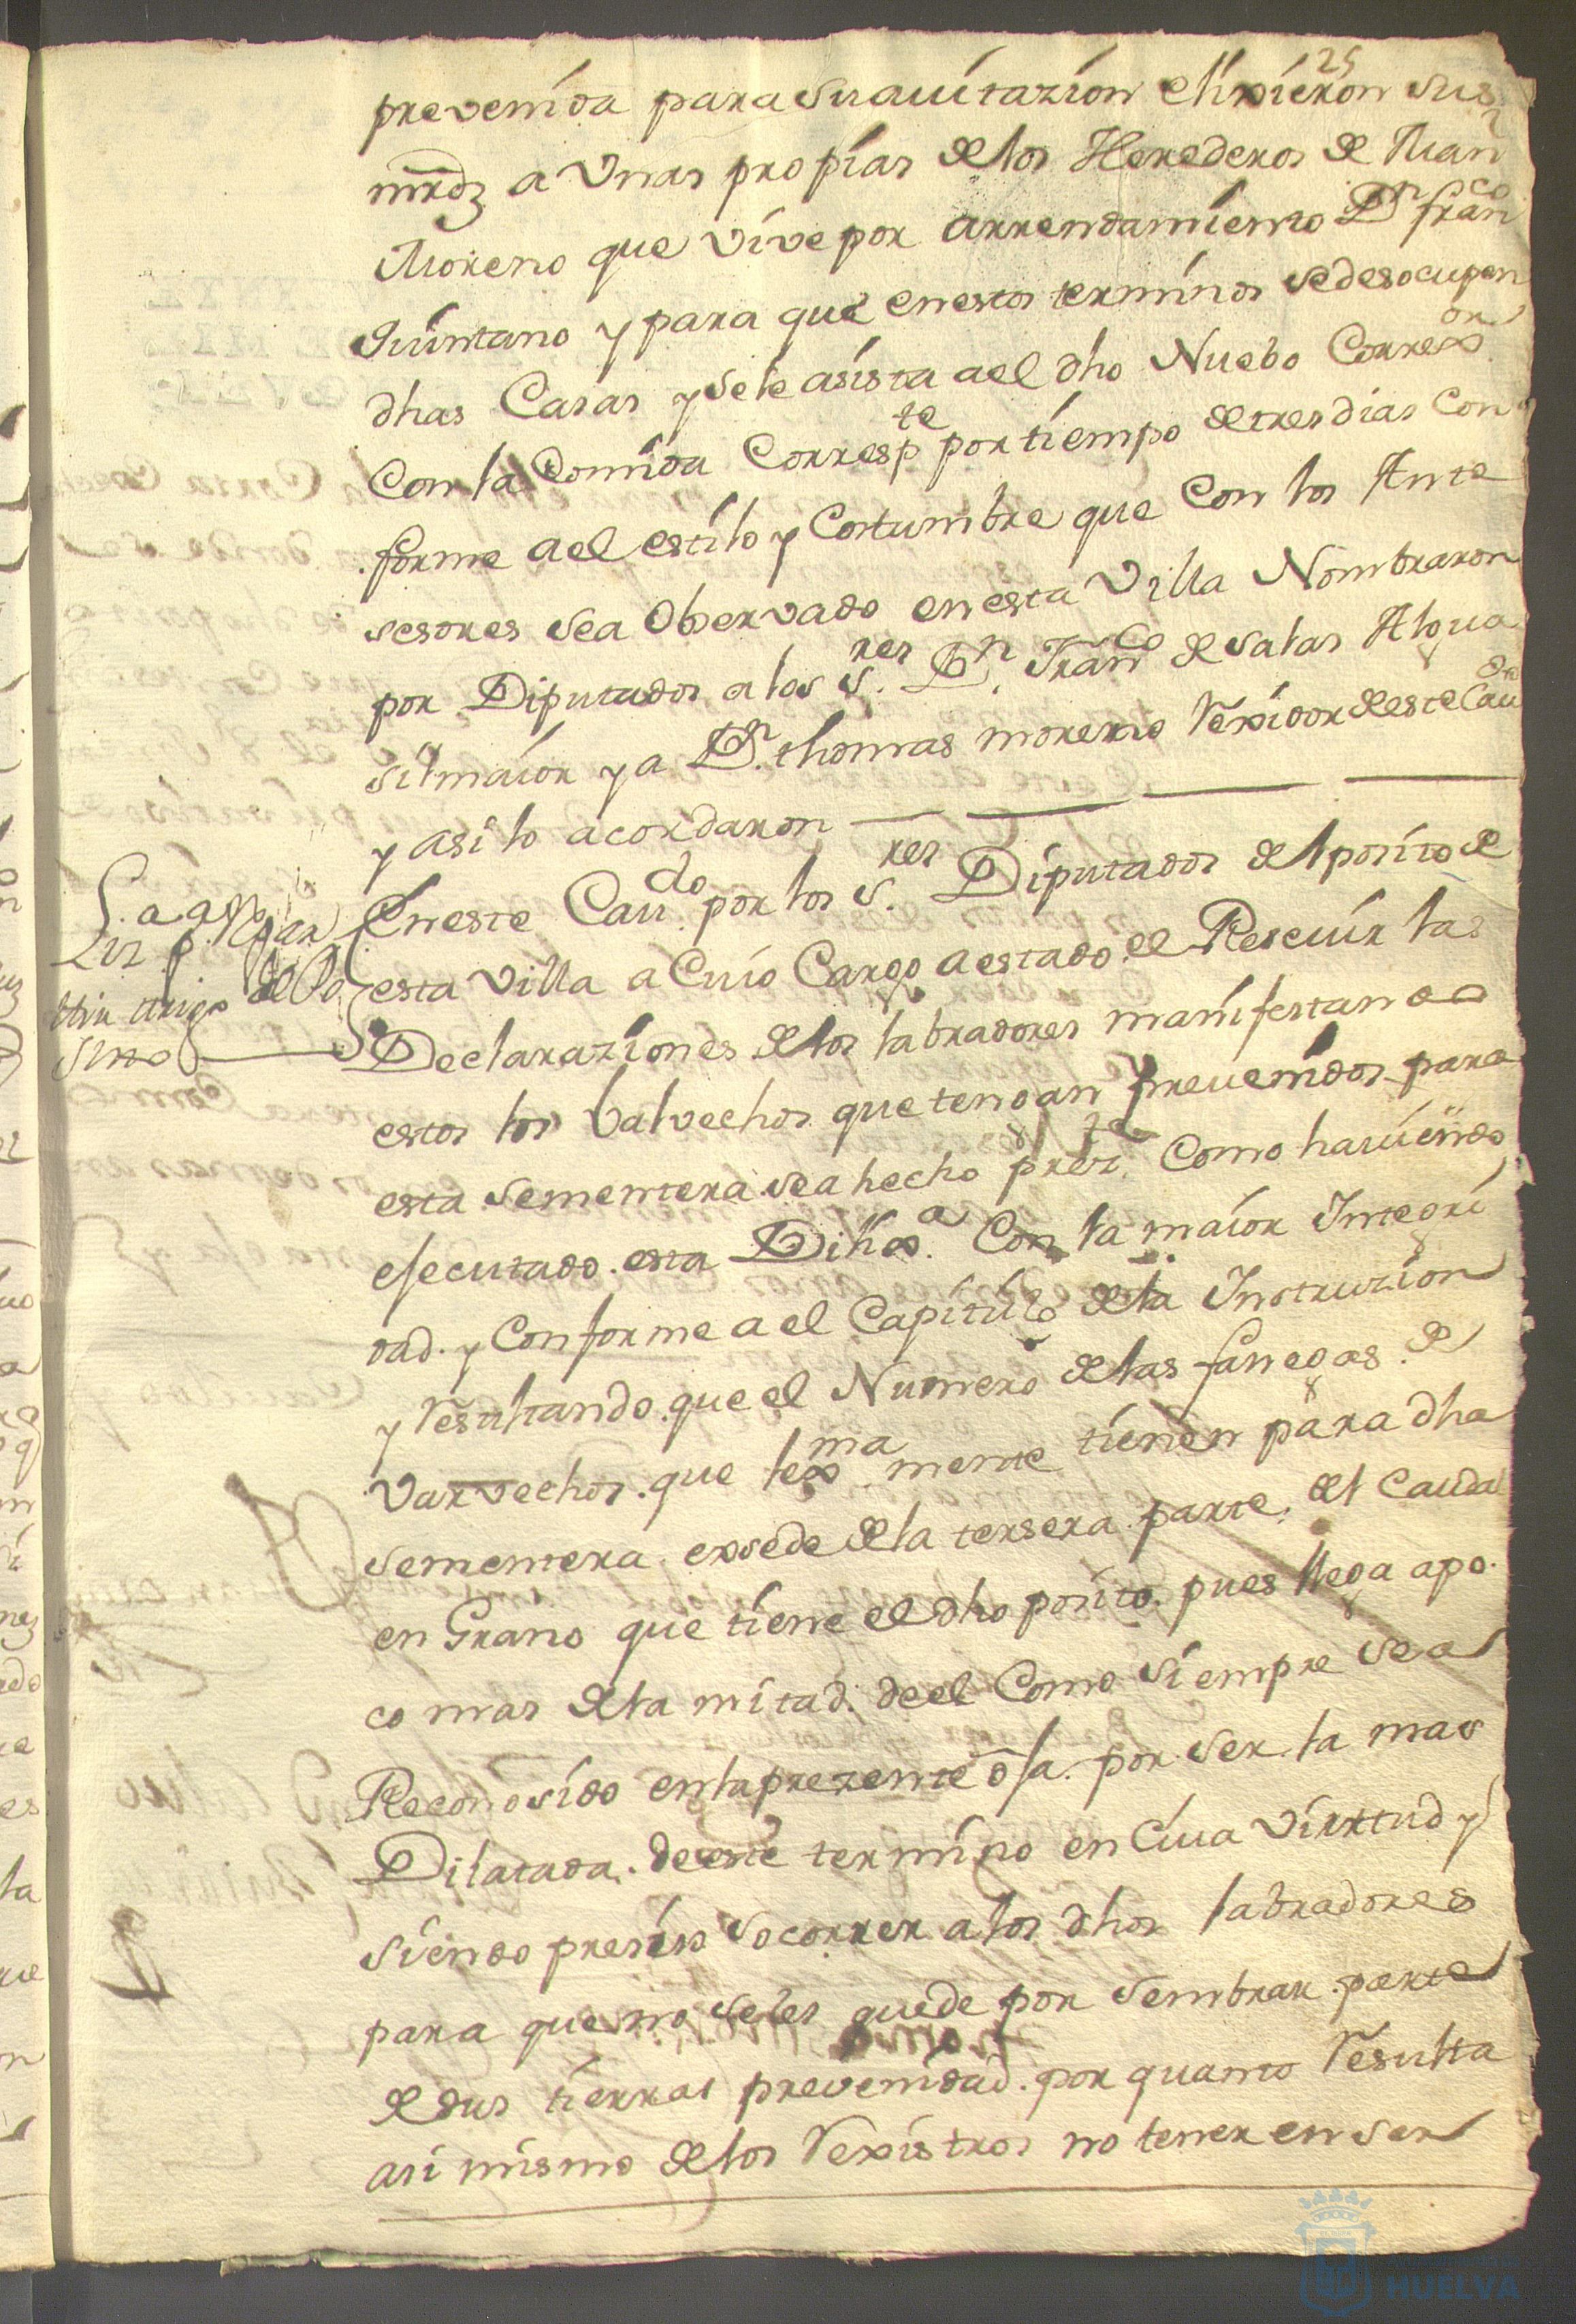 25
prevenida para su auitazion elixieron sus
mrdz a Vnas propias de los Herederos de Juan
Moreno que vive por arrendamiento Dn franco
Quintano y para que en estos terminos se desocupen
dhas Casas y se le asista a el dho Nuebo Correxor
Con la Comida Correspte por tiempo de tres dias Con
forme a el estilo y Costumbre que Con los Ante
sesores sea Obserrvado en esta Villa Nombraron
por Diputados a los Sres Dn Franco de Salas Algua
sil maior y a Dn thomas moreno Rexidor de este Caudo
y asi lo acordaron
En este Caudo por los Sres Diputados del posito de
esta Villa a Cuio Cargo a estado el Resevir las
Declaraziones de los labradores manifestando
estos los barvechos que tengan prevenidos para
esta sementera sea hecho preste Como haviendo
esecutado esta Dilixa Con la maior Integri
dad y Conforme a el Capitulo de la Instruzion
y Resultando que el Numero de las fanegas de
varvechos que lexmamente tienen para dha
sementera exsede de la tersera parte del Caudal
en Grano que tiene el dho posito pues llega a po
co mas de la mitad de el Como siempre sea
Reconosido en la prezente oja por ser la mas
Dilatada de este termino en Cuia virttud y
siendo presiso socorrer a los dhos labradores
para que no se les quede por sembrar parte
de sus tierras prevenidad por quanto Resulta
asi mismo de los Rexistros no tener en ser
HUELVA